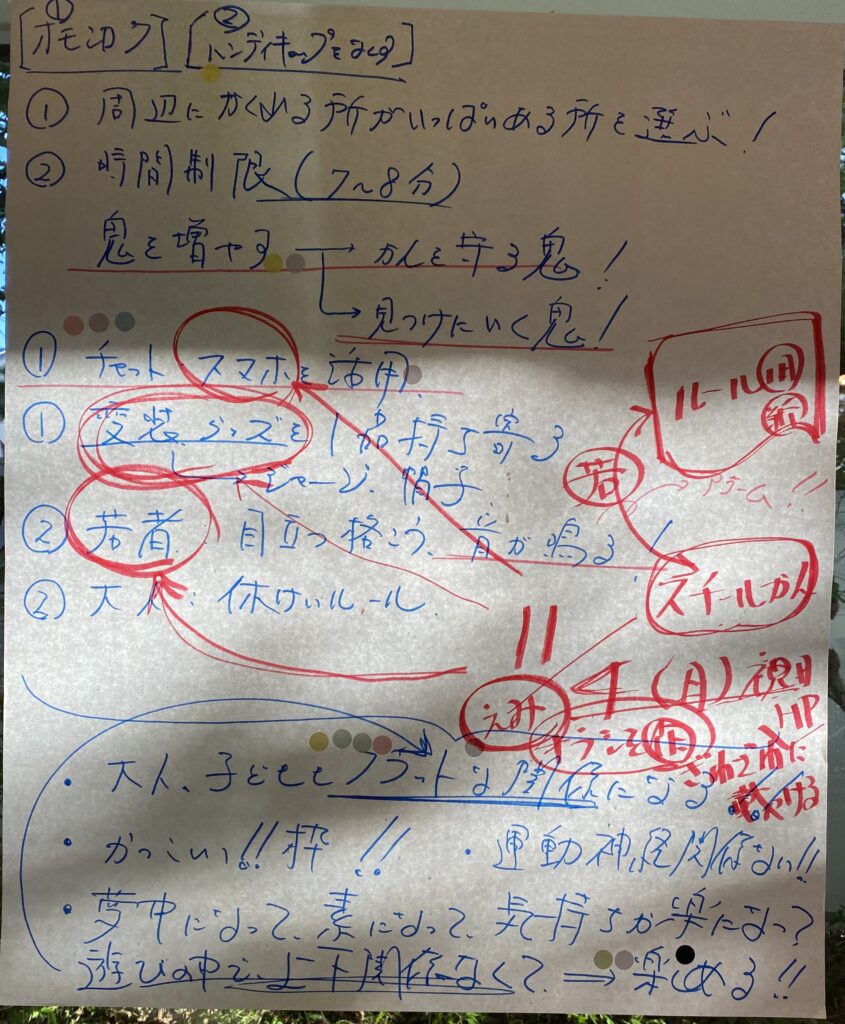 ① [オモシロク] ② [ハンディキャップをなくす]
① 周辺にかくれる所がいっぱいある所を選ぶ!
② 時間制限(7〜8分)
鬼を増やす → かんを守る鬼!
→ 見つけにいく鬼!
① チャット スマホを活用
① 変装グッズを1品持ち寄る
→ ジャージ、帽子
② 若者 目立つ格こう、音が鳴る!
② 大人:休けいルール
ルール
若
スチールかん
11
4(月)祝日
えみ
チラシを作
HP
・大人、子どももフラットな関係になる
・かっこいい!!枠!!
・運動神経関係ない!!
・夢中になって、素になって、気持ちが楽になって
遊びの中で、上下関係なくて、⇒楽しめる!!